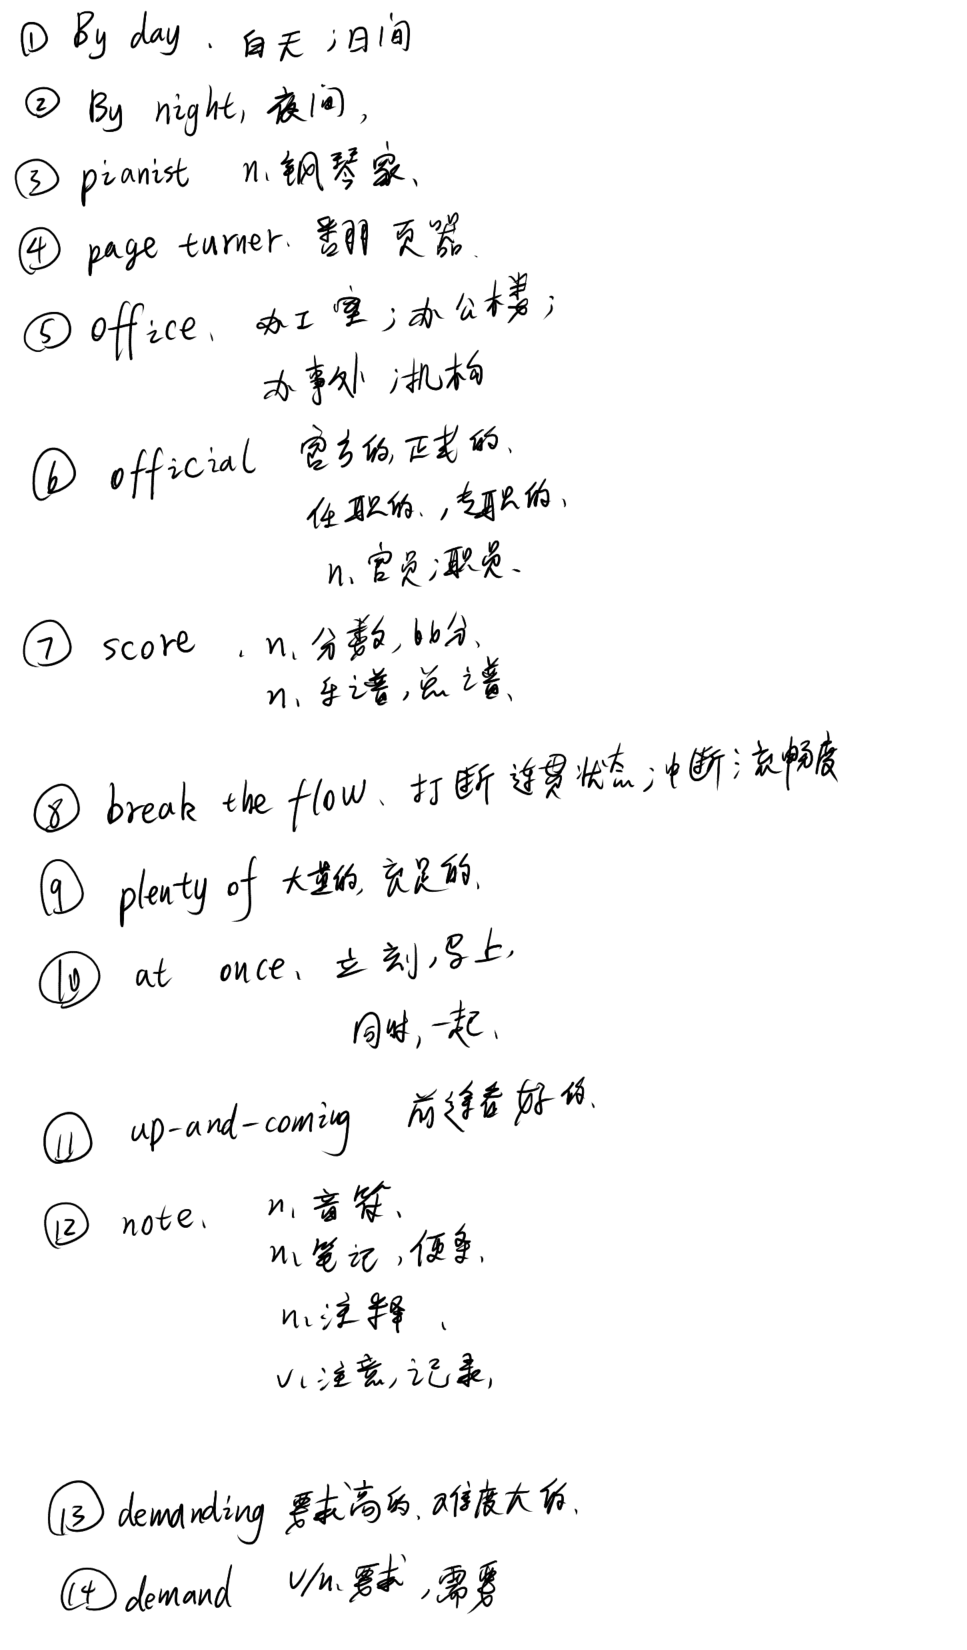 ① By day、白天；日间
② By night，夜间，
③ pianist n、钢琴家、
④ page turner、翻页器、
⑤ office、办工室；办公楼；
办事处；机构
⑥ official 官方的，正式的、
任职的、，专职的、
n、官员；职员、
⑦ score、n、分数，bb分、
n、乐谱，总谱、
⑧ break the flow、打断连贯状态；中断；流畅度
⑨ plenty of 大量的，充足的、
⑩ at once、立刻，马上，
同时，一起、
⑪ up-and-coming 前途看好的、
⑫ note、n、音符、
n、笔记，便条、
n、注释、
v、注意，记录，
⑬ demanding 要求高的、难度大的、
⑭ demand v/n、要求，需要